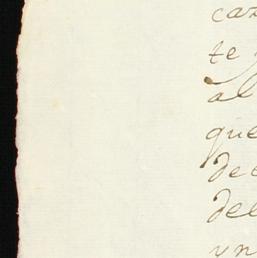 caz
te
al
que
dec
del
un